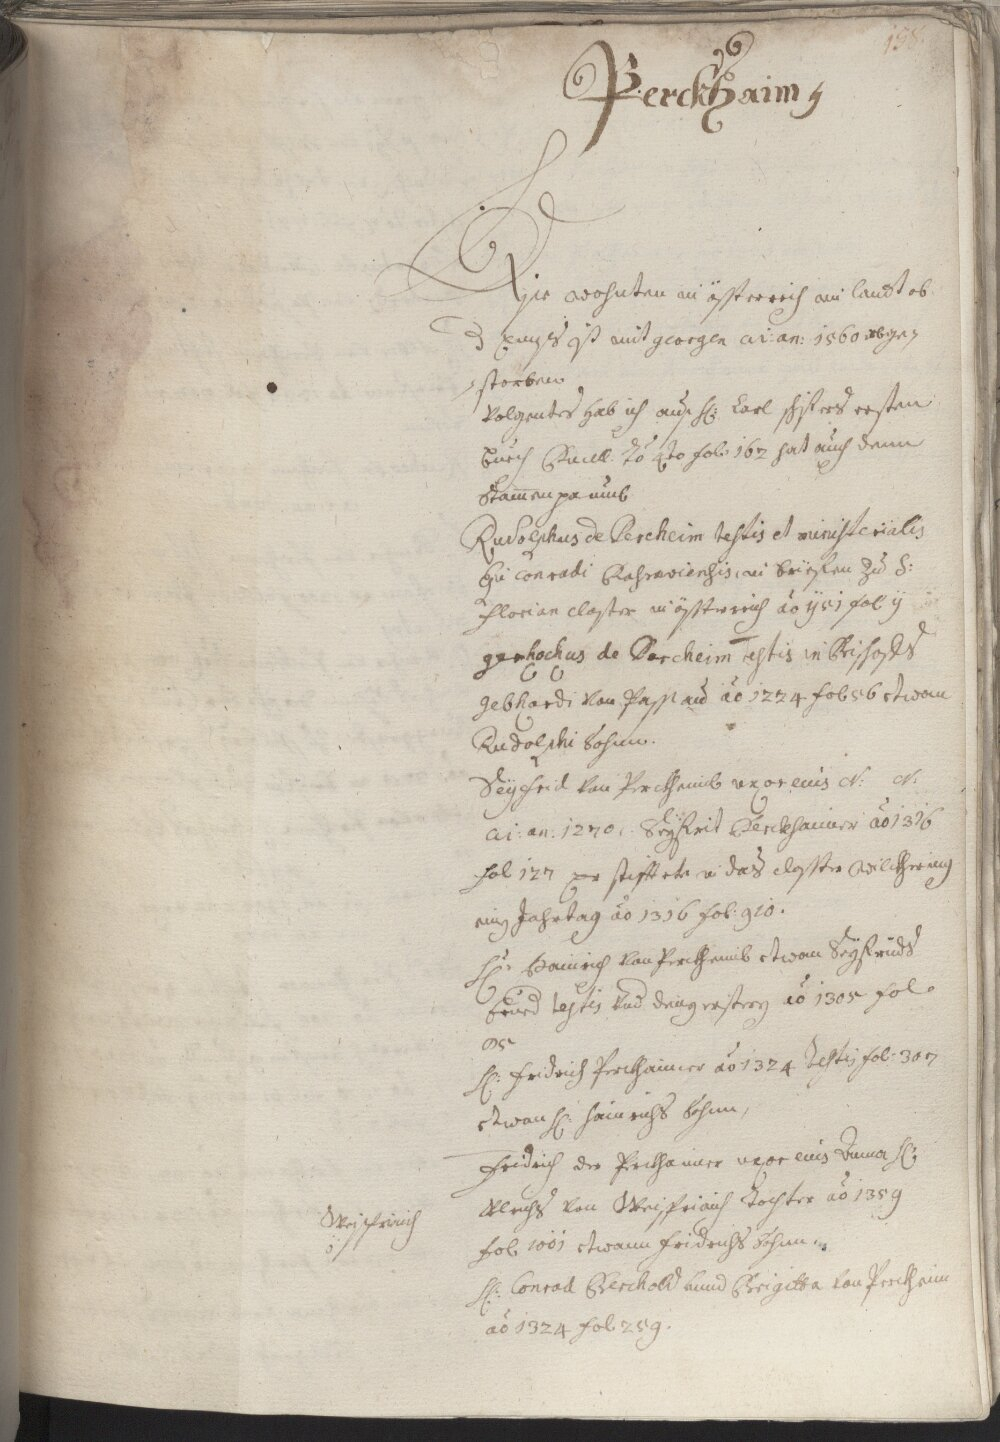 198.
Perckhaim
Die wohnten in össterreich im landt ob
d enns ist mit georgen ai: an: 1560 abge-
storben
Volgentes hab ich auß H: Carl
buech fol 162 hat auch denn
Stammen paumb
Rudolphus de Percheim testis et ministerialis
Conradi in brieffen zu S:
Florian closter in össterreich ao 1151 fol 11
gerhochus de Percheim testis in Bischoffs
gebhardi von Passau ao 1224 fol 56 etwan
Rudolphi Sohnn.
Seyfrid von Perckhaimb uxor eius N: N:
ai: an: 1270. Seyfrit Perckhaimer ao 1316
fol 127 er stifftete in das closter Wilthering
ein Jahrtag ao 1316 fol: 910.
Hr Hainrich von Perckhaimb etwan Seyfridts
brued testis ao 1305 fol.
95
H: Fridrich Perckhaimer ao 1324 testis fol: 307
etwan H: Hainrichs Sohnn,
Fridrich der Perckhaimer uxor eius Anna H:
Ulrichs von Weispriaich Tochter ao 1359
Weispriaich
fol 1001 etwann Fridrichs Sohnn.
H: Conrad Berchold unnd Brigitta von Perckheim
ao 1324 fol 259.